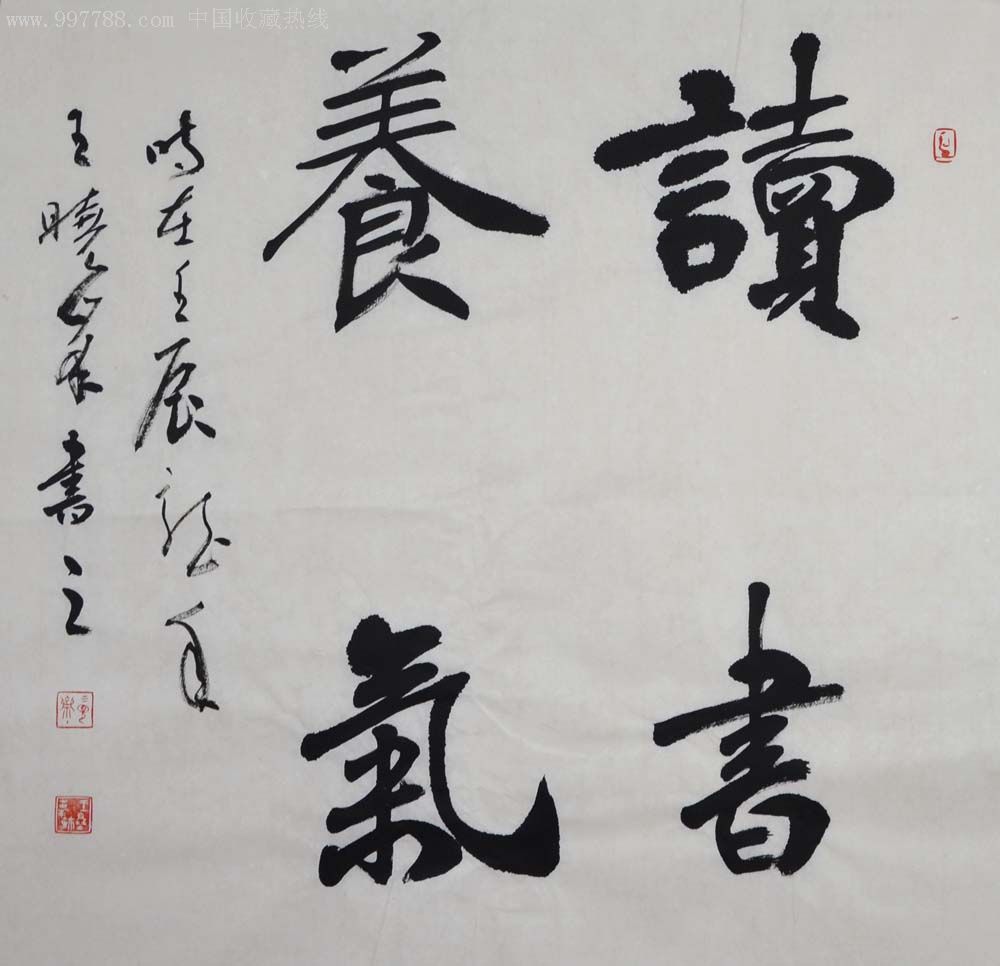 www.997788.com 中国收藏热线
讀書
養氣
時在壬辰龍年
王曉書之